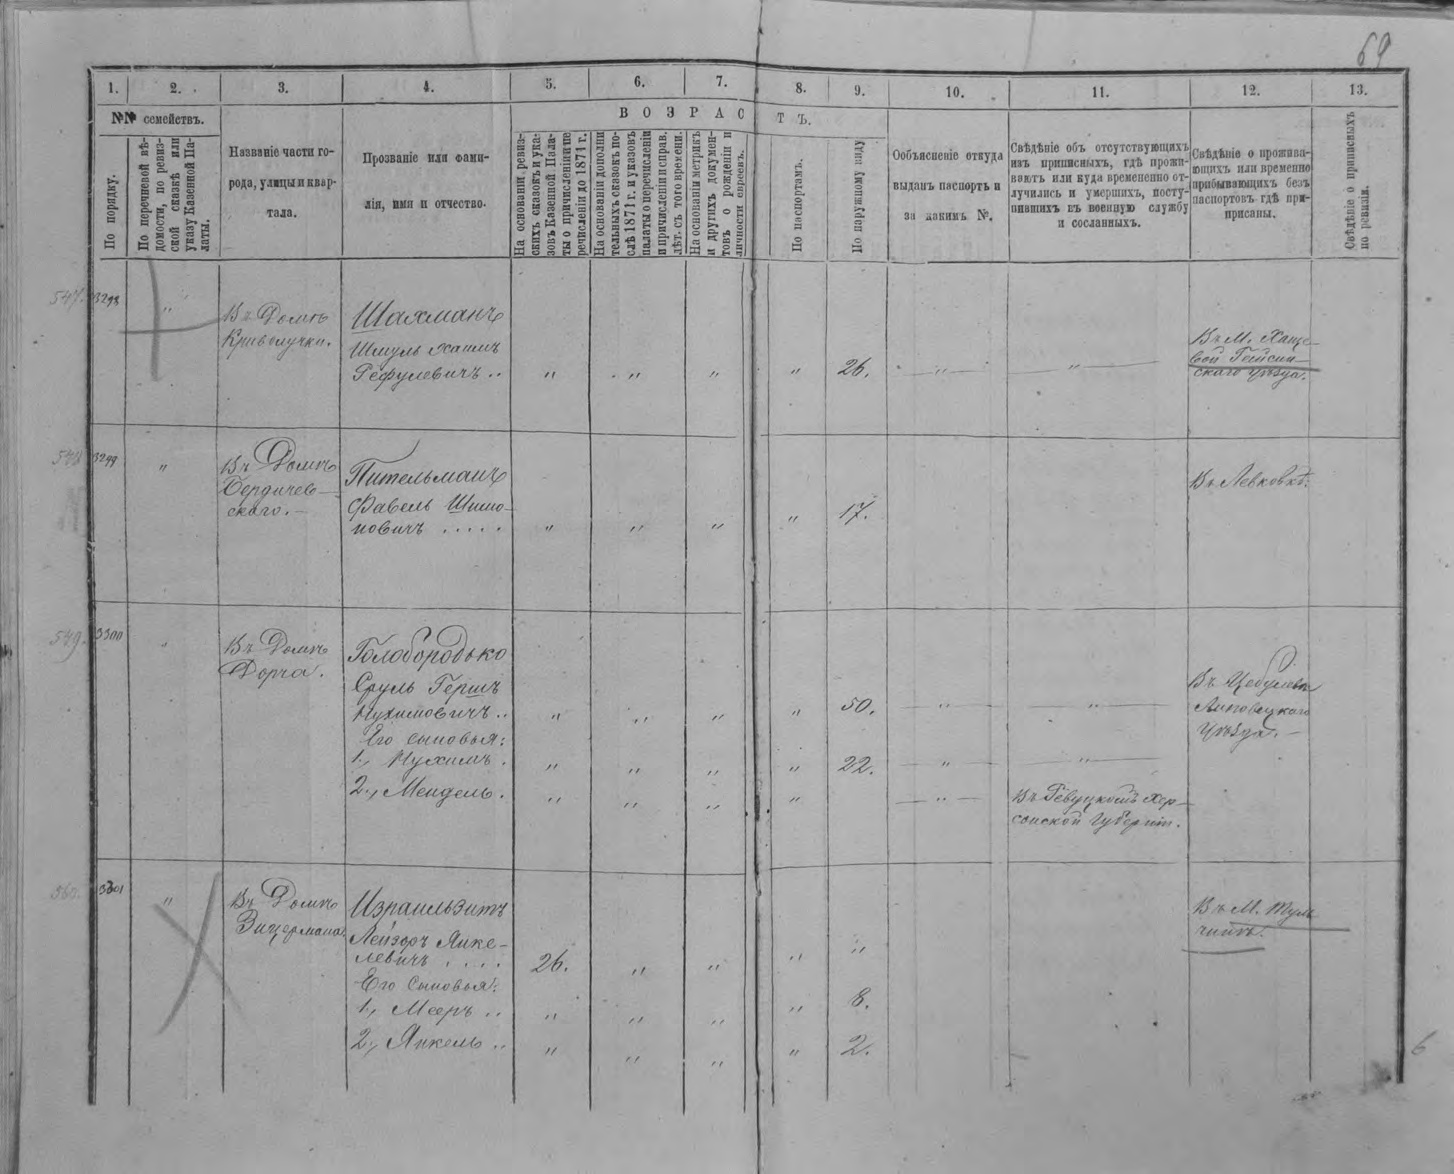 69
1. 2. 3. 4. 5. 6. 7. 8. 9. 10. 11. 12. 13.
№№ семействъ.
По порядку.
По перечневой вѣ-
домости, по ревиз-
ской сказкѣ или
указу Казенной Па-
латы.
Названіе части го-
рода, улицы и квар-
тала.
Прозваніе или фами-
лія, имя и отчество.
ВОЗРАСТЪ.
На основаніи ревиз-
скихъ сказокъ и ука-
зовъ Казенной Пала-
ты о причисленіи и пе
речисленіи до 1871 г.
На основаніи дополни
тельныхъ сказокъ по-
слѣ 1871 г. и указовъ
палаты о перечисленіи
и причисленіи и справ.
лѣт. съ того времени.
На основаніи метрикъ
и другихъ докумен-
товъ о рожденіи и
личности евреевъ.
По паспортамъ.
По наружному виду
Ообъясненіе откуда
выданъ паспортъ и
за какимъ №.
Свѣдѣніе объ отсутствующихъ
изъ приписныхъ, гдѣ прожи-
ваютъ или куда временено от-
лучились и умершихъ, посту-
пившихъ въ военную службу
и сосланныхъ.
Свѣдѣніе о прожива-
ющихъ или временно
прибывающихъ безъ
паспортовъ гдѣ при-
присаны.
Свѣдѣніе о приписныхъ
по ревизіи.
547. 3298 "
Въ Домѣ
Криволучки.
Шахманъ
Шмуль Хаимъ
Рефулевичъ .. " " " " 26. — " — — " —
Въ М. Хаще-
вой Гайсин-
скаго уѣзда.
548 3299 "
Въ Домѣ
Бердичев-
скаго. —
Пительманъ
Фавель Шимо-
новичъ . . . . . " " " " 17.
Въ Левковкѣ.
549. 3300 "
Въ Домѣ
Дорча.
Голобородько
Сруль Гершъ
Нухимовичъ .. " " " " 50. — " — — " —
Въ Цебулевѣ
Липовецкаго
Уѣзда. —
Его сыновья:
1., Нухимъ . " " " " 22. — " — — " —
2., Мендель. " " " " — " —
Въ Хер-
сонской Губерніи.
550. 3301 "
Въ Домѣ
Зицермана
Израильзитъ
Лейзоръ Янке-
левичъ . . . . 26. " " " "
Въ М. Туль
чинѣ.
Его Сыновья:
1., Мееръ .. " " " " 8.
2., Янкель .. " " " " 2.
6